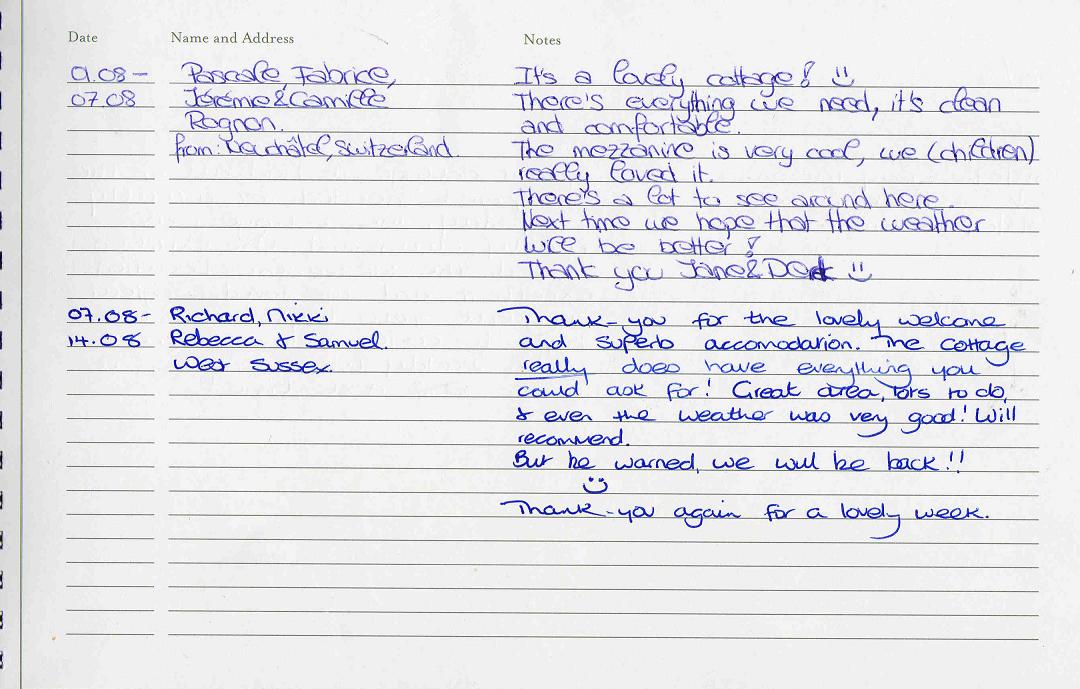 Date Name and Address Notes
01.08- Pascale, Fabrice, It's a lovely cottage! :)
07.08 Jérémie & Camille There's everything we need, it's clean
Rognon. and comfortable.
from: Neuchâtel, Switzerland. The mezzanine is very cool, we (children)
really loved it.
There's a lot to see around here.
Next time we hope that the weather
will be better!
Thank you Jane & :)
07.08- Richard, Nikki Thank-you for the lovely welcome
14.08 Rebecca & Samuel. and superb accomodation. The cottage
West Sussex. really does have everything you
could ask for! Great area, lots to do,
& even the weather was very good! Will
recommend.
But be warned, we will be back!!
:)
Thank-you again for a lovely week.